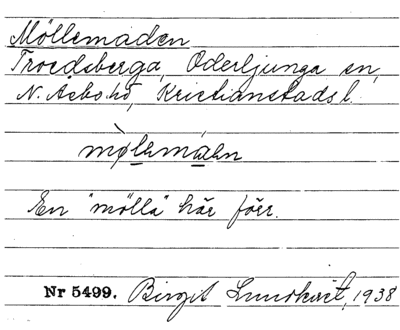 Möllemaden
Troedsberga, Oderljunga sn,
N. Åsbo hd, Kristianstads l.
mø̀lemáen
En "mölla" här förr.
Nr 5499. Birgit Lundkvist, 1938